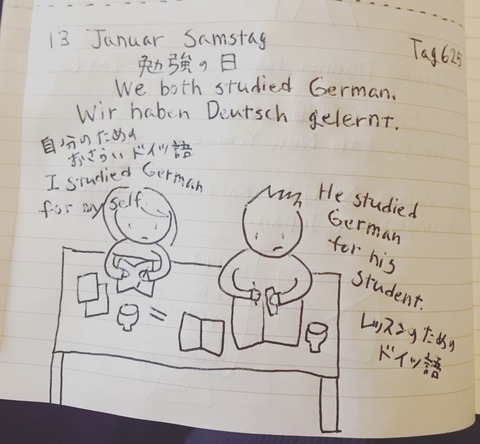 13 Januar Samstag
Tag 625
勉強の日
We both studied German.
Wir haben Deutsch gelernt.
自分のための
おさらいドイツ語
I studied German
for my self.
He studied
German
for his
student.
レッスンのための
ドイツ語